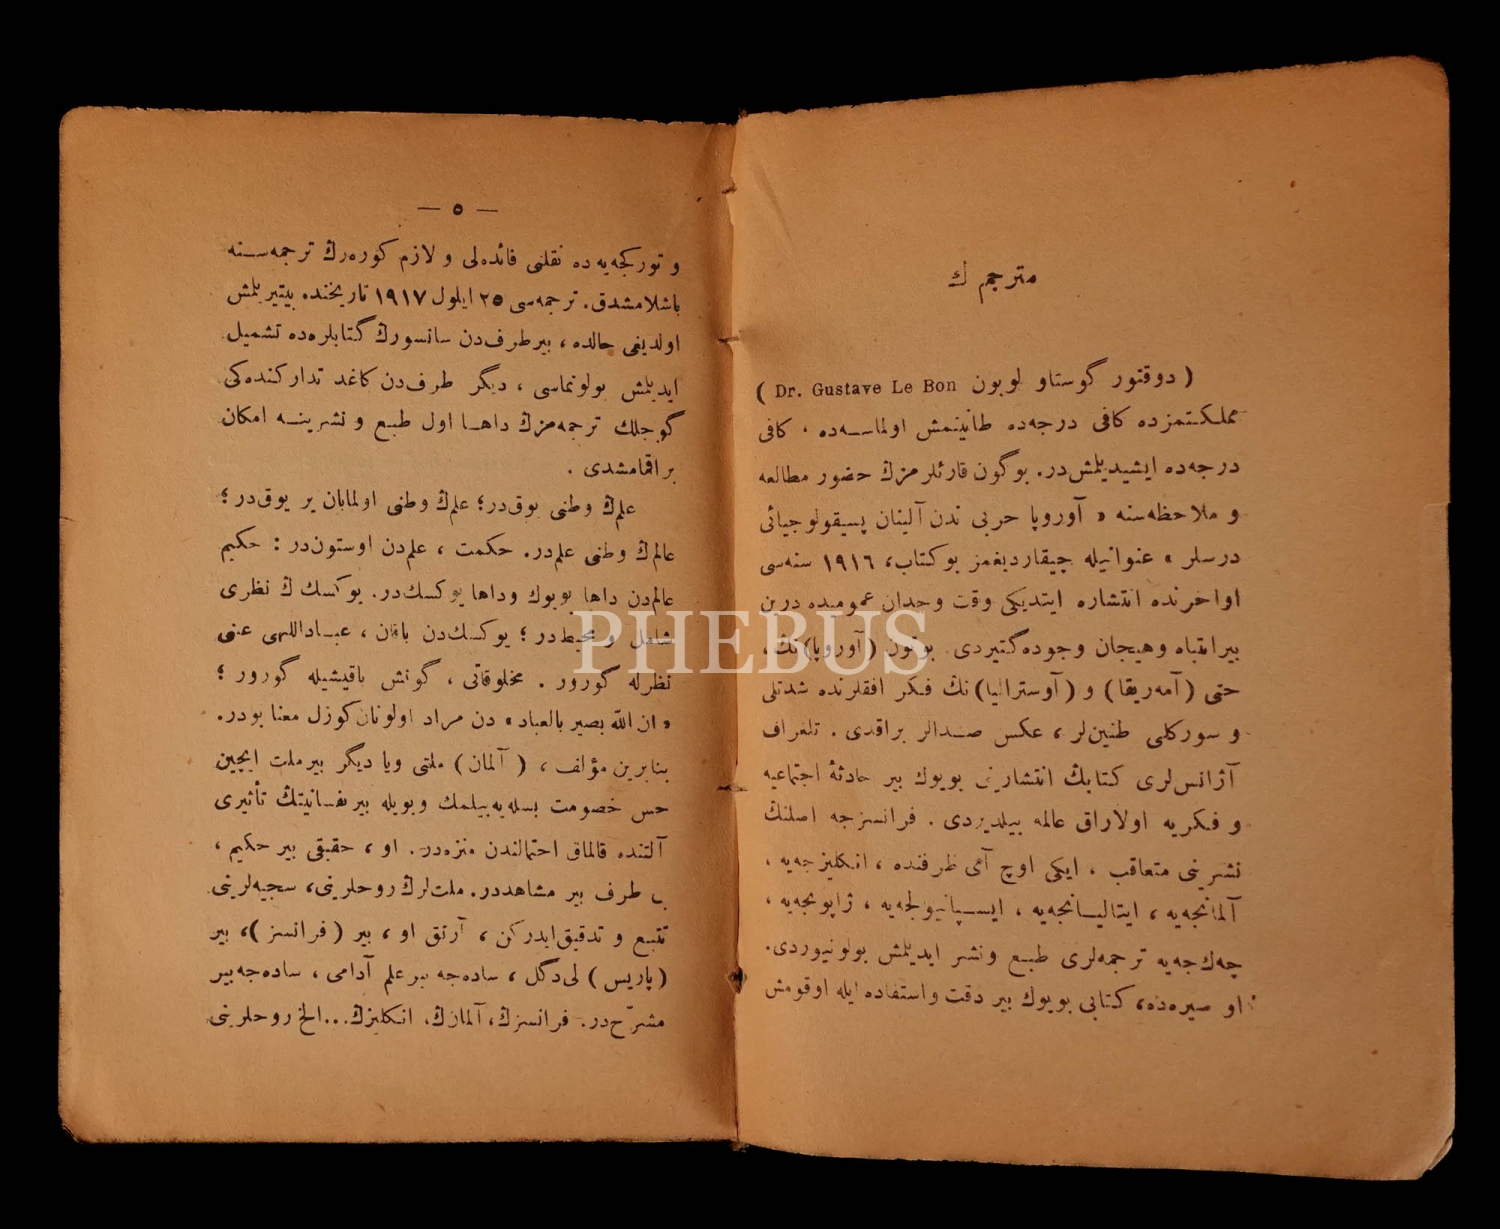 مترجم ڭ
( دوقتور گوستاو لوبون Dr. Gustave Le Bon )
مملكتمزده كافی درجه‌ده طانینمش اولماسه‌ده ، كافی
درجه‌ده ایشیدیلمش‌در. بوگون قارئلرمزڭ حضور مطالعه
و ملاحظه‌سنه « آوروپا حربی ندن آلینان پسیقولوجیائی
درسلر » عنوانیله چیقاردیغمز بوكتاب، ١٩١٦ سنه‌سی
اواخرنده انتشاره ایتدیكی وقت وجدان عمومیده درین
بیرانتباه وهیجان وجوده‌گتیردی. بوتون (آوروپا)نك،
حتی (آمه‌ریقا) و (آوسترالیا)نك فكر افقلرنده شدتلی
و سوركلی طنین‌لر ، عكس صدالر براقدی . تلغراف
آژانس‌لری كتابڭ انتشارینی بویوك بیر حادثهٔ اجتماعیه
و فكریه اولاراق عالمه بیلدیردی . فرانسزجه اصلنڭ
نشرینی متعاقب ، ایكی اوچ آی ظرفنده ، انكلیزجه‌یه ،
آلمانجه‌یه ، ایتالیانجه‌یه ، ایسپانیولجه‌یه ، ژاپونجه‌یه ،
چه‌ك‌جه‌یه ترجمه‌لری طبع ونشر ایدیلمش بولونیوردی.
او سیره‌ده، كتابی بویوك بیر دقت واستفاده ایله اوقومش
— ٥ —
و توركجه‌یه ده نقلنی فائده‌لی و لازم گوره‌رڭ ترجمه‌سنه
باشلامشدق. ترجمه‌سی ٢٥ ایلول ١٩١٧ تاریخنده بیتیریلمش
اولدیغی حالده ، بیرطرف‌دن سانسورڭ گتابلره‌ده تشمیل
ایدیلمش بولونماسی ، دیگر طرف‌دن كاغد تداركنده‌كی
گوجلك ترجمه‌مزڭ داها اول طبع و نشرینه امكان
براقمامشدی .
علمڭ وطنی یوق‌در؛ علمڭ وطنی اولمابان یر یوق‌در ؛
عالمڭ وطنی علم‌در. حكمت ، علم‌دن اوستون‌در : حكیم
عالم‌دن داها بویوك وداها یوكسك‌در. یوكسك ڭ نظری
شامل و محیط‌در ؛ یوكسك‌دن باقان ، عباداللهی عنی
نظرله گورور . مخلوقاتی ، گونش باقیشیله گورور ؛
« ان الله بصیر بالعباد» دن مراد اولونان‌كوزل معنا بودر.
بنابرین مؤلف ، ( آلمان ) ملتی ویا دیگر بیرملت ایچین
حس خصومت بسله‌یه‌بیلمك وبویله بیرنفسانیتڭ تأثیری
آلتنده قالماق احتمالندن منزه‌در. او ، حقیقی بیر حكیم ،
ب طرف بیر مشاهددر. ملت‌لرڭ روحلرینی، سجیه‌لرینی
تتبع و تدقیق‌ایدركن ، آرتق او ، بیر (فرانسز )، بیر
(پاریس) لی‌دگل ، ساده‌جه بیرعلم آدامی ، ساده‌جه‌بیر
مشرّح‌در. فرانسزڭ، آلمانڭ، انكلیزڭ...الخ روحلرینی